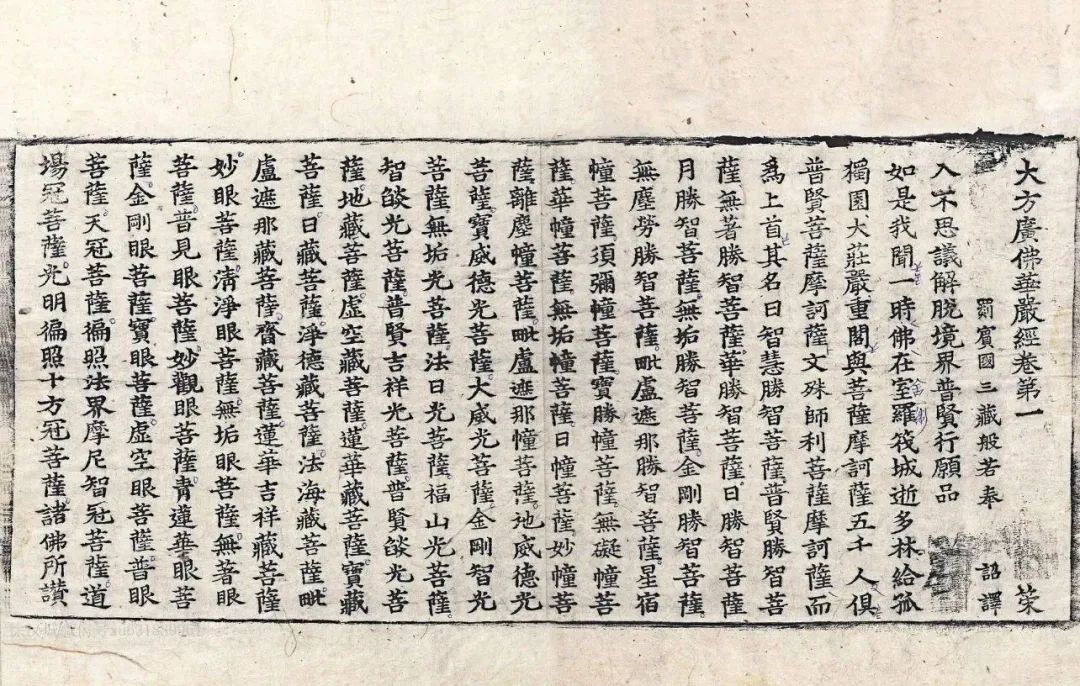 大方廣佛華嚴經卷第一
罽賓國三藏般若奉　詔譯
入不思議解脫境界普賢行願品
如是我聞一時佛在室羅筏城逝多林給孤
獨園大莊嚴重閣與菩薩摩訶薩五千人俱
普賢菩薩摩訶薩文殊師利菩薩摩訶薩而
爲上首其名曰智慧勝智菩薩普賢勝智菩
薩無著勝智菩薩華勝智菩薩日勝智菩薩
月勝智菩薩無垢勝智菩薩金剛勝智菩薩
無塵勞勝智菩薩毗盧遮那勝智菩薩星宿
幢菩薩須彌幢菩薩寶勝幢菩薩無礙幢菩
薩華幢菩薩無垢幢菩薩日幢菩薩妙幢菩
薩離塵幢菩薩毗盧遮那幢菩薩地威德光
菩薩寶威德光菩薩大威光菩薩金剛智光
菩薩無垢光菩薩法日光菩薩福山光菩薩
智燄光菩薩普賢吉祥光菩薩普賢燄光菩
薩地藏菩薩虛空藏菩薩蓮華藏菩薩寶藏
菩薩日藏菩薩淨德藏菩薩法海藏菩薩毗
盧遮那藏菩薩齎藏菩薩蓮華吉祥藏菩薩
妙眼菩薩清淨眼菩薩無垢眼菩薩無著眼
菩薩普見眼菩薩妙觀眼菩薩青蓮華眼菩
薩金剛眼菩薩寶眼菩薩虛空眼菩薩普眼
菩薩天冠菩薩徧照法界摩尼智冠菩薩道
場冠菩薩光明徧照十方冠菩薩諸佛所讃